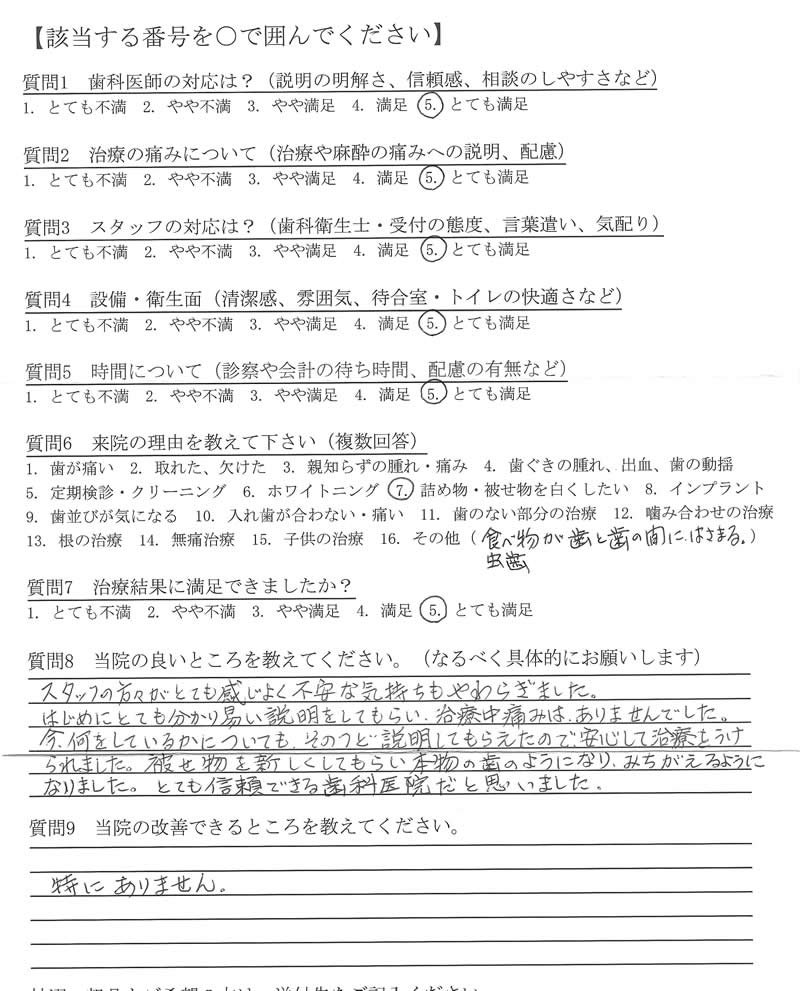 【該当する番号を○で囲んでください】
質問1 歯科医師の対応は？（説明の明解さ、信頼感、相談のしやすさなど）
1. とても不満 2. やや不満 3. やや満足 4. 満足 5. とても満足
質問2 治療の痛みについて（治療や麻酔の痛みへの説明、配慮）
1. とても不満 2. やや不満 3. やや満足 4. 満足 5. とても満足
質問3 スタッフの対応は？（歯科衛生士・受付の態度、言葉遣い、気配り）
1. とても不満 2. やや不満 3. やや満足 4. 満足 5. とても満足
質問4 設備・衛生面（清潔感、雰囲気、待合室・トイレの快適さなど）
1. とても不満 2. やや不満 3. やや満足 4. 満足 5. とても満足
質問5 時間について（診察や会計の待ち時間、配慮の有無など）
1. とても不満 2. やや不満 3. やや満足 4. 満足 5. とても満足
質問6 来院の理由を教えて下さい（複数回答）
1. 歯が痛い 2. 取れた、欠けた 3. 親知らずの腫れ・痛み 4. 歯ぐきの腫れ、出血、歯の動揺
5. 定期検診・クリーニング 6. ホワイトニング 7. 詰め物・被せ物を白くしたい 8. インプラント
9. 歯並びが気になる 10. 入れ歯が合わない・痛い 11. 歯のない部分の治療 12. 噛み合わせの治療
13. 根の治療 14. 無痛治療 15. 子供の治療 16. その他（食べ物が歯と歯の間にはさまる。）
虫歯
質問7 治療結果に満足できましたか？
1. とても不満 2. やや不満 3. やや満足 4. 満足 5. とても満足
質問8 当院の良いところを教えてください。（なるべく具体的にお願いします）
スタッフの方々がとても感じよく不安な気持ちもやわらぎました。
はじめにとても分かり易い説明をしてもらい、治療中痛みは、ありませんでした。
今、何をしているかについても、そのつど説明してもらえたので安心して治療をうけ
られました。被せ物を新しくしてもらい本物の歯のようになり、みちがえるように
なりました。とても信頼できる歯科医院だと思いました。
質問9 当院の改善できるところを教えてください。
特にありません。